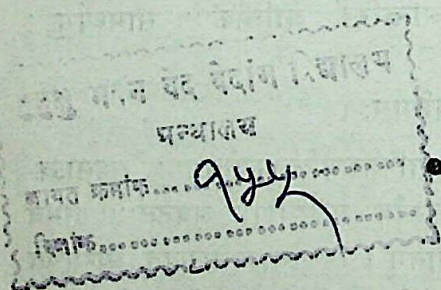 भवन वेद वेदांग विद्यालय
ग्रन्थालय
आगत क्रमांक.....१५५.....
दिनांक.....